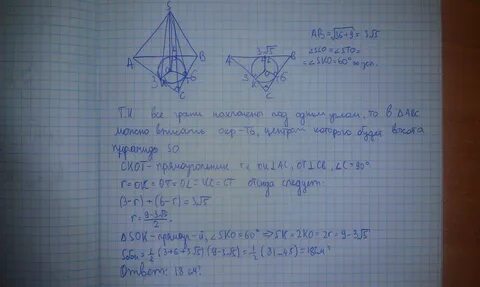 S
A B C
3 6 K O
3√5
A B L
3 K 6 C
AB = √36+9 = 3√5
∠SLO = ∠STO =
= ∠SKO = 60° по усл.
Т.к все грани наклонены под одним углом, то в △ABC
можно вписать окр-ть, центром которого будет высота
пирамиды SO
CKOT - прямоугольник т.к OK⊥AC, OT⊥CB, ∠C = 90°
r = OK = OT = OL = KC = CT отсюда следует:
(3-r) + (6-r) = 3√5
r = 9-3√5/2.
△SOK - прямоуг-й, ∠SKO = 60° ⇒ SK = 2KO = 2r = 9-3√5
Sбок = 1/2 (3+6+3√5)(9-3√5) = 1/2 (81-45) = 18 см²
Ответ: 18 см².